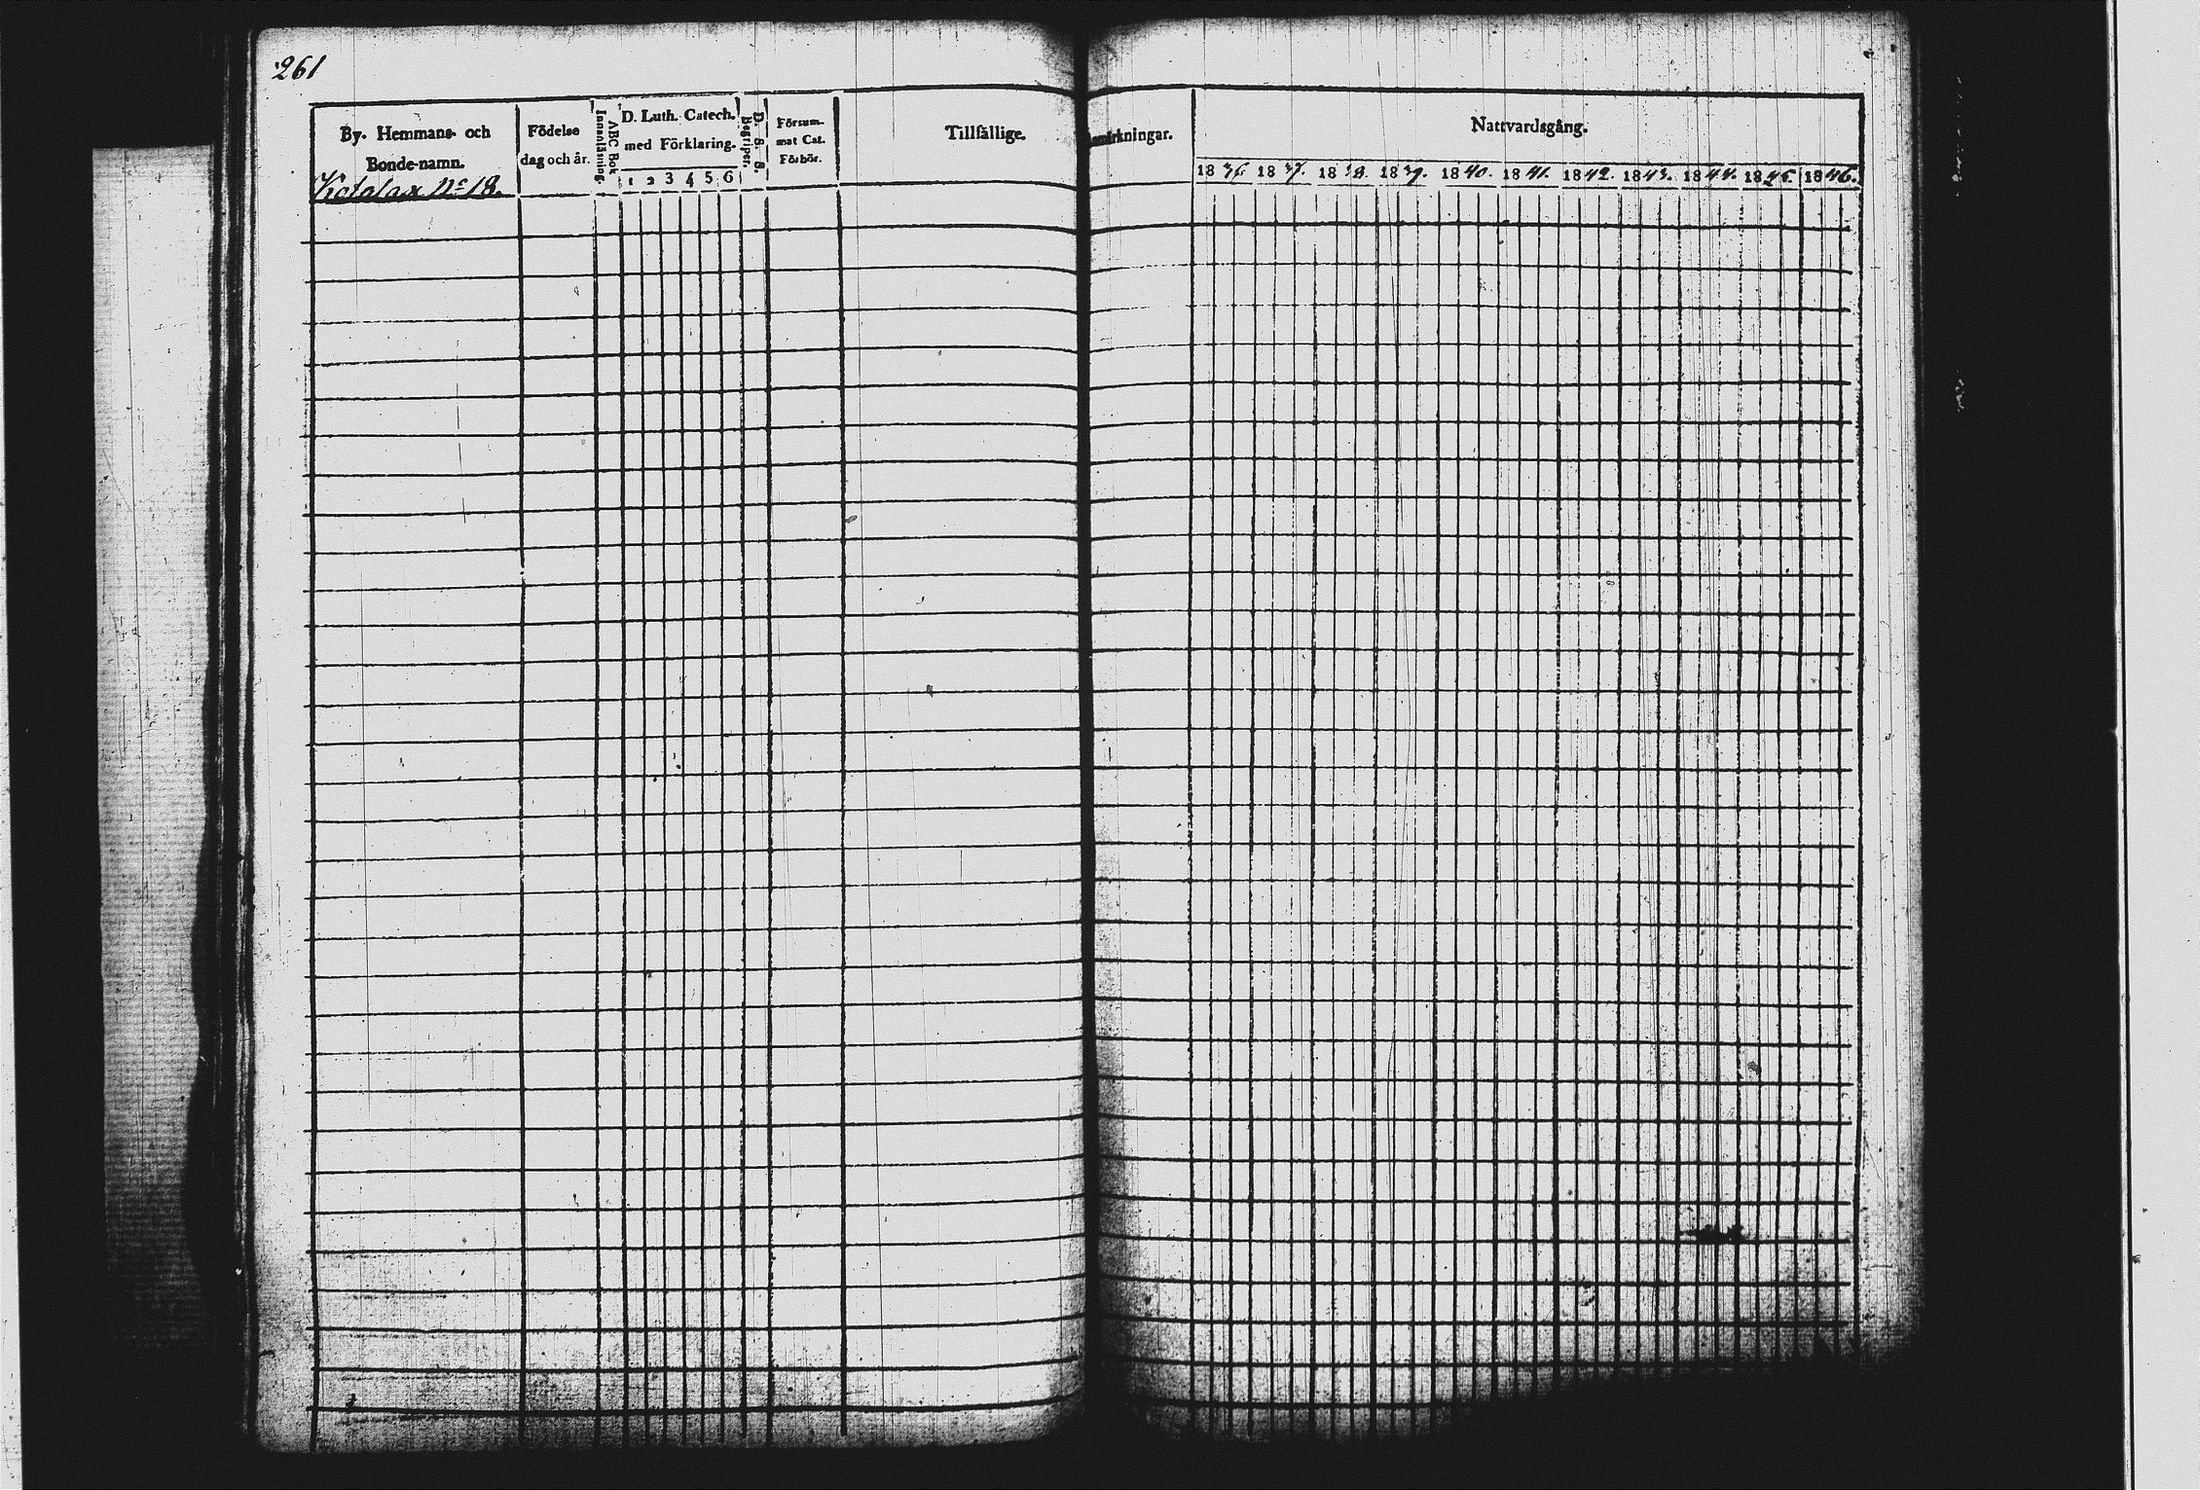 261
By. Hemmans- och
Bonde-namn.
Födelse
dag och år.
ABC Bok
Innanläsning.
D. Luth. Catech.
med Förklaring.
1 2 3 4 5 6
D. S. S.
Begriper.
Försum-
mat Cat.
Förhör.
Tillfällige
Anmärkningar.
Nattvardsgång.
1836 1837. 1838. 1839. 1840. 1841. 1842. 1843. 1844. 1845. 1846.
No 18.